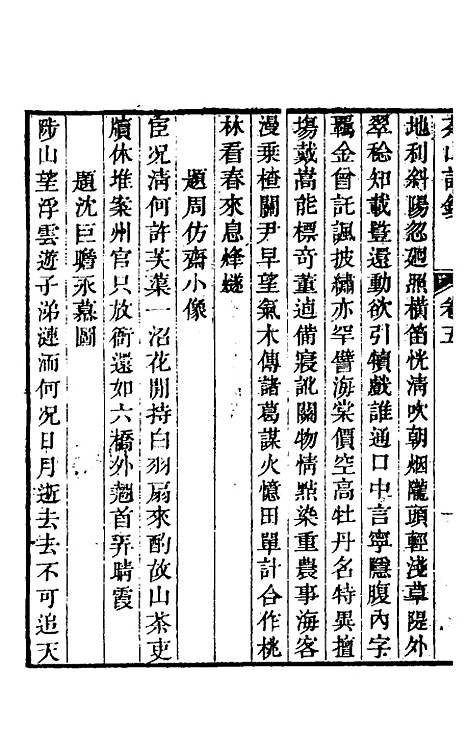 卷五
地利斜陽忽𢌞照橫笛恍清吹朝烟隴頭輕淺草隄外
翠稔知載暨還動欲引犢戲誰通口中言寧隱腹內字
羈金曾託諷披繡亦罕譬海棠價空高牡丹名特異擅
塲戴嵩能標奇董逌備寢訛關物情點染重農事海客
漫乘楂關尹早望氣木傳諸葛謀火憶田單計合作桃
林看春來息烽燧
題周仿齋小像
宦况清何許芙蕖一沼花開持白羽扇來酌故山茶吏
牘休堆案州官只放衙還如六橋外翹首弄晴霞
題沈巨瞻永慕圖
陟山望浮雲遊子涕漣洏何况日月逝去去不可追天